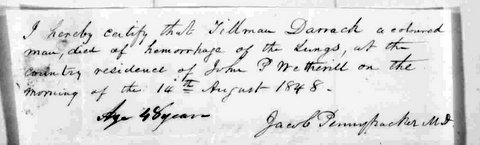 I hereby certify that Tillman Darrack a coloured
man, died of hemorrhage of the Lungs, at the
country residence of John P Wetherill on the
morning of the 14th August 1848.
Age 48 years
Jacob Pennypacker M.D.